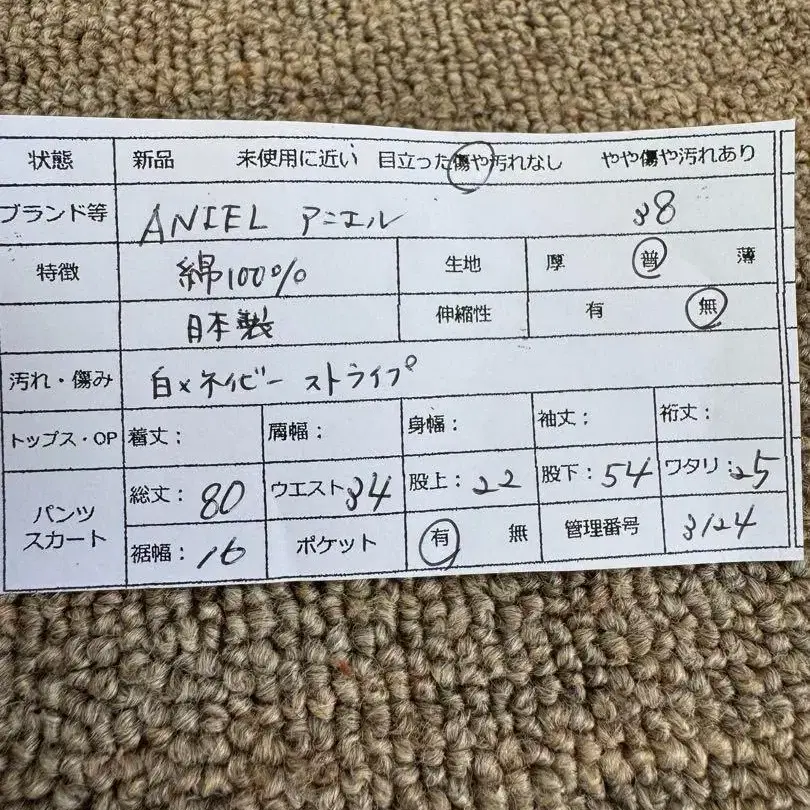 状態 新品 未使用に近い 目立った傷や汚れなし やや傷や汚れあり
ブランド等 ANIEL アニエル 38
特徴 綿100% 生地 厚 普 薄
日本製 伸縮性 有 無
汚れ・傷み 白×ネイビー ストライプ
トップス・OP 着丈： 肩幅： 身幅： 袖丈： 裄丈：
パンツ スカート 総丈：80 ウエスト34 股上：22 股下：54 ワタリ：25
裾幅：16 ポケット 有 無 管理番号 3124